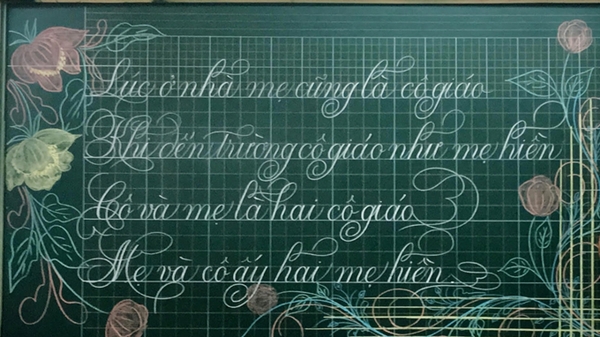 Lúc ở nhà mẹ cũng là cô giáo
Khi đến trường cô giáo như mẹ hiền
Cô và mẹ là hai cô giáo
Mẹ và cô ấy hai mẹ hiền